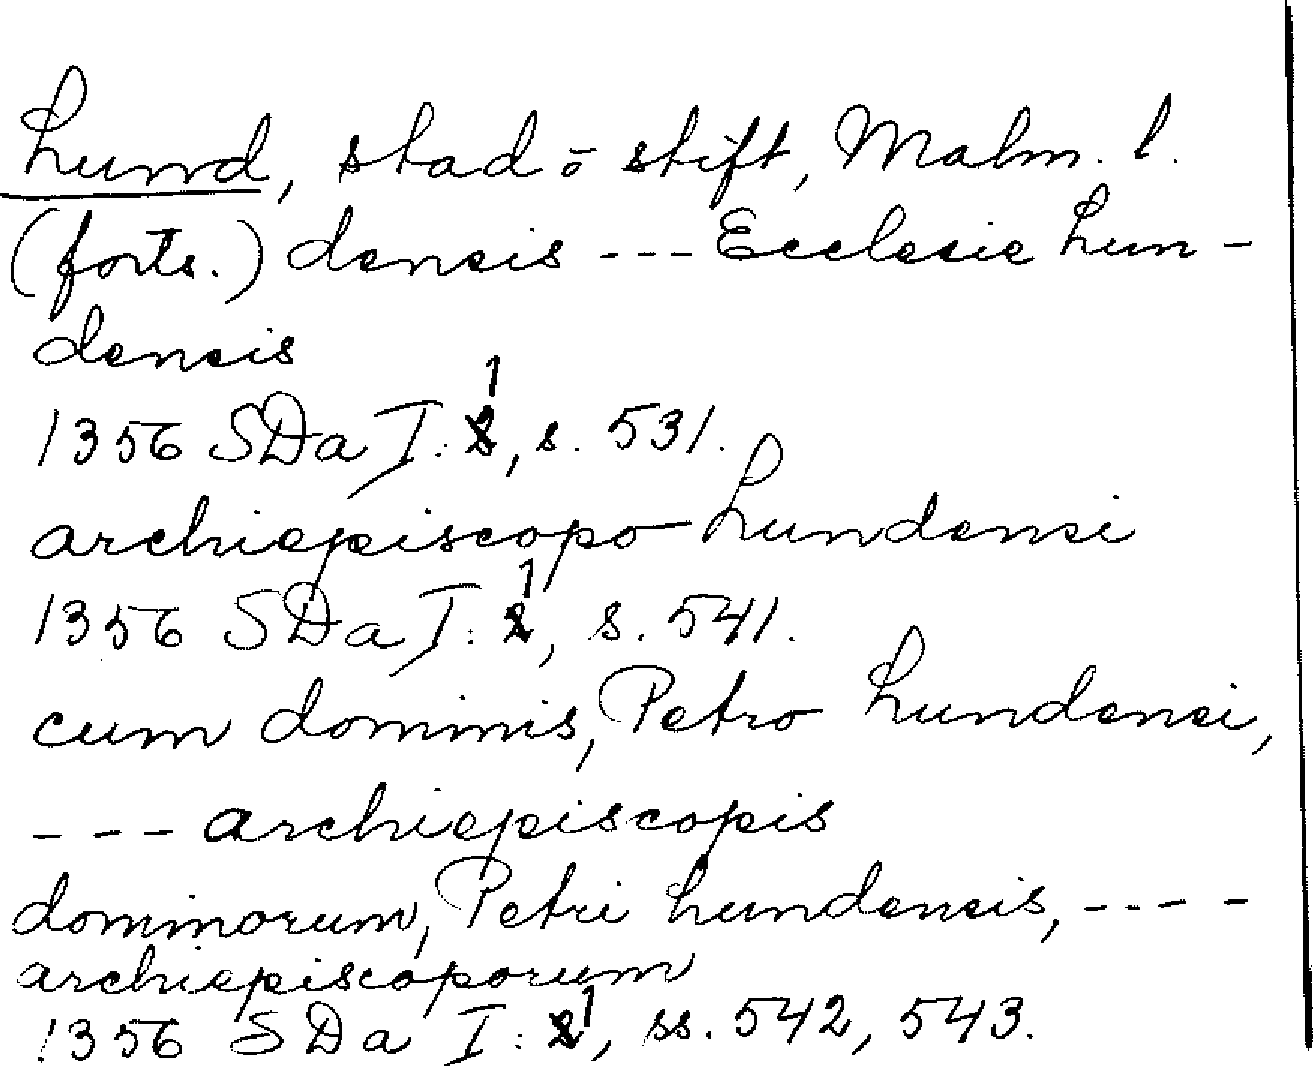 Lund, stad o stift, Malm. l.
(forts.) densis --- Ecclesie Lun-
densis
1356 SDa I:1, s. 531.
archiepiscopo Lundensi
1356 SDa I:1, s. 541.
cum dominis, Petro Lundensi,
--- archiepiscopis
dominorum, Petri Lundensis, ----
archiepiscoporum
1356 SDa I:1, ss. 542, 543.